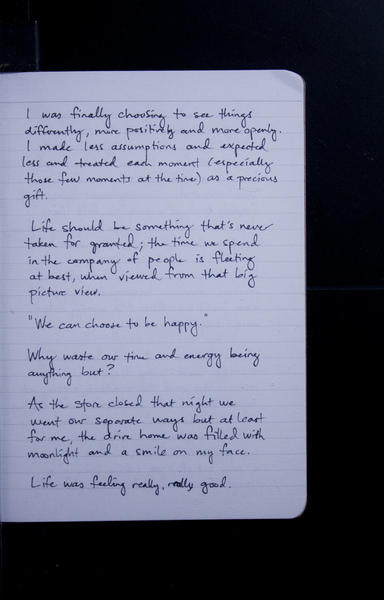 I was finally choosing to see things
differently, more positively and more openly.
I made less assumptions and expected
less and treated each moment (especially
those few moments at the time) as a precious
gift.
Life should be something that's never
taken for granted; the time we spend
in the company of people is fleeting
at best, when viewed from that big
picture view.
"We can choose to be happy."
Why waste our time and energy being
anything but?
As the store closed that night we
went our separate ways but at least
for me, the drive home was filled with
moonlight and a smile on my face.
Life was feeling really, really good.